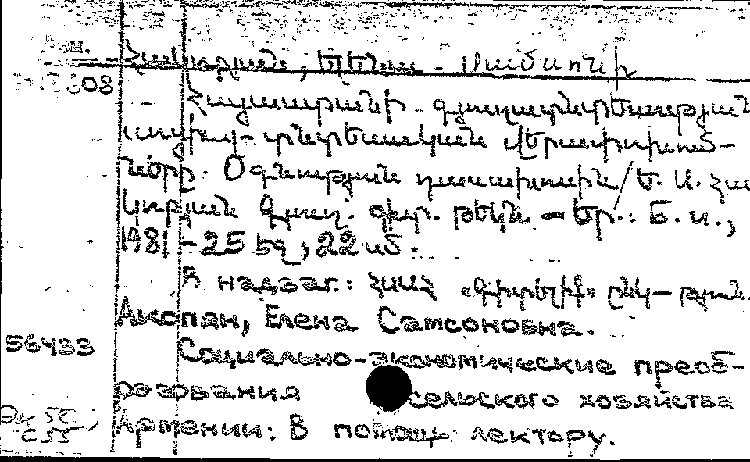 Հակոբյան, Ելենա Սամսոնի
608
Հայաստանի գյուղատնտեսության
սոցիալ-տնտեսական վերափոխում-
ները. Օգնություն դասախոսին / Ե. Ս. Հա
կոբյան գյուղ. գիտ. թեկն. — Եր.: Б. и.,
1981 - 25 էջ, 22 սմ.
В надзаг.: ՀՍՍՀ «Գիտելիք» ընկ-թյուն.
Акопян, Елена Самсоновна.
56433
Социально-экономические преоб-
разования сельского хозяйства
Армении: В помощь лектору.